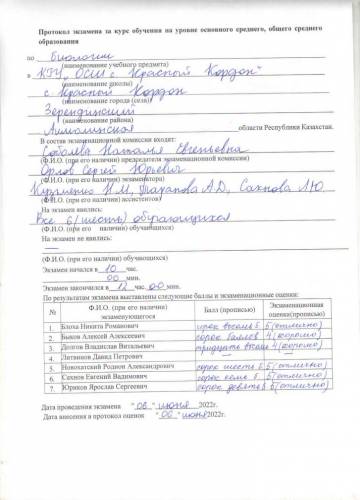 Протокол экзамена за курс обучения на уровне основного среднего, общего среднего
образования
по биологии
(наименование учебного предмета)
в КГУ "ОСШ с. Красный Кордон"
(наименование школы)
с. Красный Кордон
(наименование города (села))
Зерендинский
(наименование района)
Акмолинская области Республики Казахстан.
В состав экзаменационной комиссии входят:
Наталья Евгеньевна
(Ф.И.О. (при его наличии) председателя экзаменационной комиссии)
Орлов Сергей Юрьевич
(Ф.И.О. (при его наличии) экзаменатора)
Кузьменко Н.М, А.Д, Сахнова Л.Ю.
(Ф.И.О. (при его наличии) ассистентов)
На экзамен явились:
Все 6 (шесть) обучающихся
(Ф.И.О. (при его наличии) обучающихся)
На экзамен не явились:
—
(Ф.И.О. (при его наличии) обучающихся)
Экзамен начался в 10 час.
00 мин.
Экзамен закончился в 12 час. 00 мин.
По результатам экзамена выставлены следующие баллы и экзаменационные оценки:
№ Ф.И.О. (при его наличии) экзаменующегося Балл (прописью) Экзаменационная оценка(прописью)
1. Блоха Никита Романович сорок восемь 5 (отлично)
2. Быков Алексей Алексеевич сорок баллов 4 (хорошо)
3. Долгов Владислав Витальевич тридцать восемь 4 (хорошо)
4. Литвинов Давид Петрович — —
5. Новохатский Родион Александрович сорок шесть 5 (отлично)
6. Сахнов Евгений Вадимович сорок семь 5 (отлично)
7. Юриков Ярослав Сергеевич сорок девять 5 (отлично)
Дата проведения экзамена "06" июня 2022г.
Дата внесения в протокол оценок "06" июня 2022г.